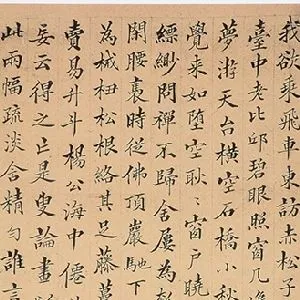 我欲乘飛車東訪赤松子
臺中老比邱碧眼照窗几
夢游天台橫空石橋小秋
覺來如墮空耿〻窗戶曉
縹緲問禪不歸舍屋為
閑腰裹時從佛頂巖馳下
為械枏松根絡其足藤蔓
賣易升斗楊公海中僊
妄云得之亡是叟論畫
此兩幅疏淡含精勻誰言